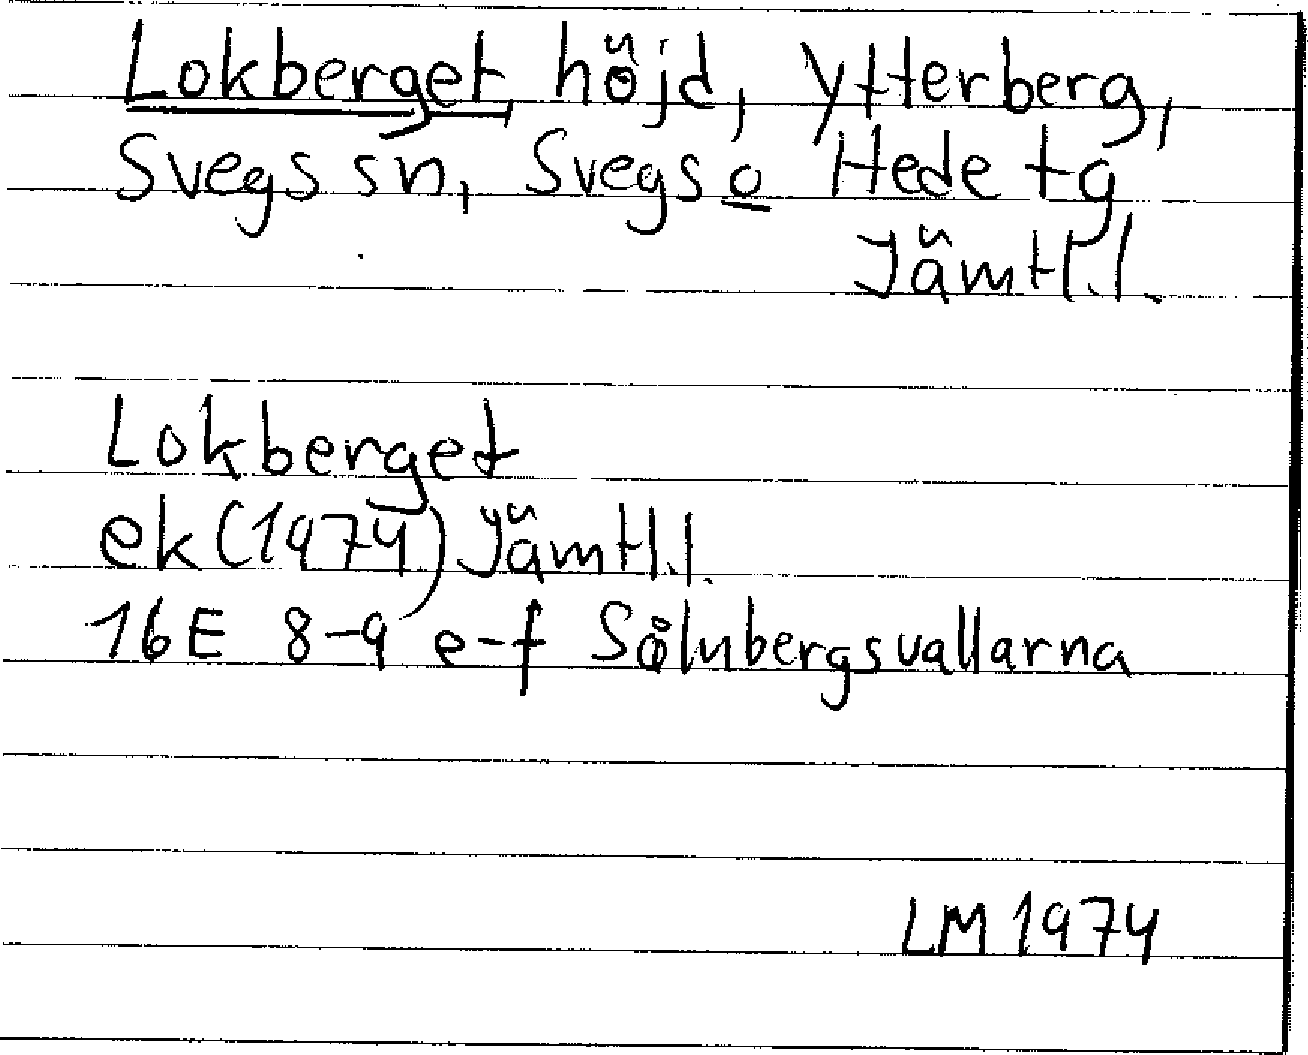 Lokberget, höjd, Ytterberg,
Svegs sn, Svegs o Hede tg
Jämtl. l.
Lokberget
ek (1974) Jämtl. l.
16E 8-9 e-f Sålnbergsvallarna
LM 1974